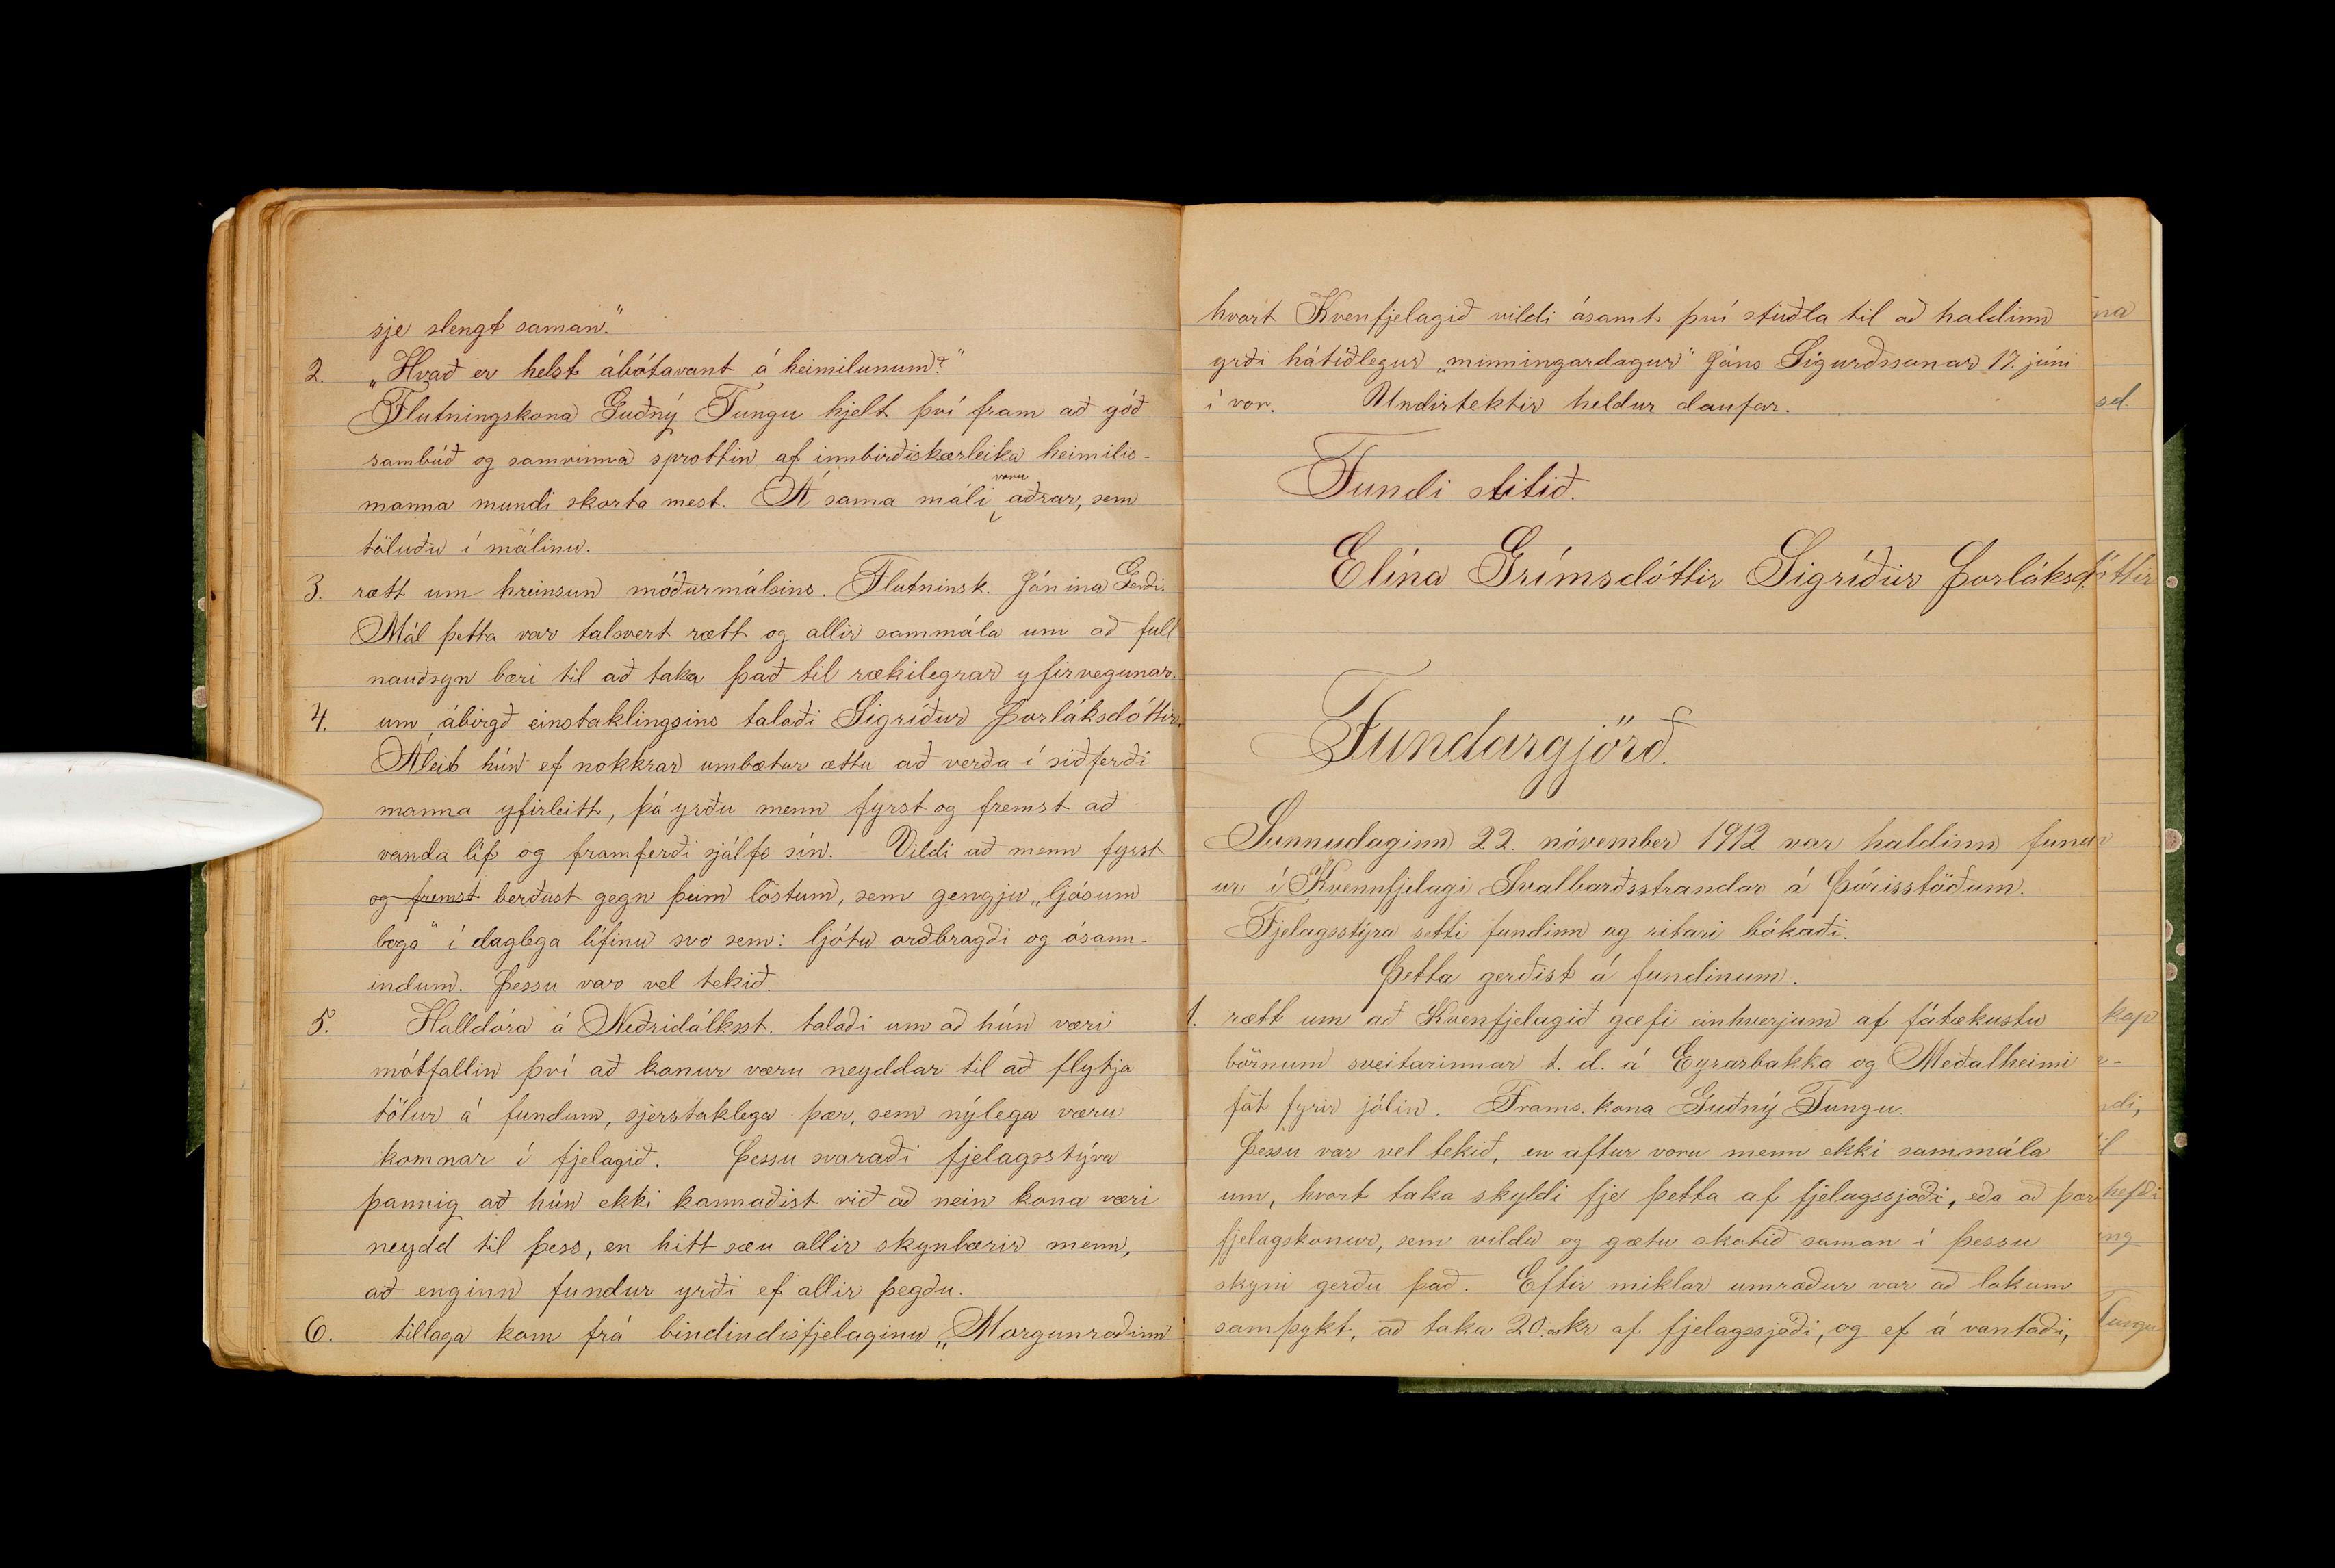 sje slengt saman."
2. „Hvað er helst ábótavant á heimilunum?"
Flutningskona Guðný Tungu hjelt því fram að góð
sambúð og samvinna sprottin af innbirðiskærleika heimilis-
manna mundi skorta mest. Á sama máli voru aðrar, sem
töluðu í málinu.
3. rætt um hreinsun móðurmálsins. Flutninsk. Jónina Gerði.
Mál þetta var talsvert rætt og allir sammála um að full
nauðsyn bæri til að taka það til rækilegrar yfirvegunar.
4. um ábirgð einstaklingsins talaði Sigríður Þorláksdóttir.
Áleit hún ef nokkrar umbætur ættu að verða í siðferði
manna yfirleitt, þá yrðu menn fyrst og fremst að
vanda líf og framferði sjálfs sín. Vildi að menn fyrst
og fremst berðust gegn þeim löstum, sem gengju „ljósum
loga" í daglega lífinu svo sem: ljótu orðbragði og ósann-
indum. Þessu var vel tekið.
5. Halldóra á Neðridálksst. talaði um að hún væri
mótfallin því að konur væru neyddar til að flytja
tölur á fundum, sjerstaklega þær, sem nýlega væru
komnar í fjelagið. Þessu svaraði fjelagsstýra
þannig að hún ekki kannaðist við að nein kona væri
neydd til þess, en hitt sæu allir skynbærir menn,
að enginn fundur yrði ef allir þegðu.
6. tillaga kom frá bindindisfjelaginu „Morgunroðinn
hvort Kvenfjelagið vildi ásamt því stuðla til að haldinn
yrði hátíðlegur „minningardagur" Jóns Sigurðssonar 17. júni
í vor. Undirtektir heldur daufar.
Fundi slitið.
Elína Grímsdóttir Sigríður Þorláksd.
Fundargjörð.
Sunnudaginn 22. nóvember 1912 var haldinn fund
ur í Kvennfjelagi Svalbarðsstrandar á Þórisstöðum.
Fjelagsstýra setti fundinn og ritari bókaði.
Þetta gerðist á fundinum.
1. rætt um að Kvenfjelagið gæfi einhverjum af fátækustu
börnum sveitarinnar t. d. á Eyrarbakka og Meðalheimi
föt fyrir jólin. Frams. kona Guðný Tungu.
Þessu var vel tekið, en aftur voru menn ekki sammála
um, hvort taka skyldi fje þetta af fjelagssjóði, eða að þær
fjelagskonur, sem vildu og gætu skotið saman í þessu
skyni gerðu það. Eftir miklar umræður var að lokum
samþykt, að taka 20 kr af fjelagssjóði, og ef á vantaði,
na
sd.
óttir
kap
ndi,
il
hefði
ing
Tungu